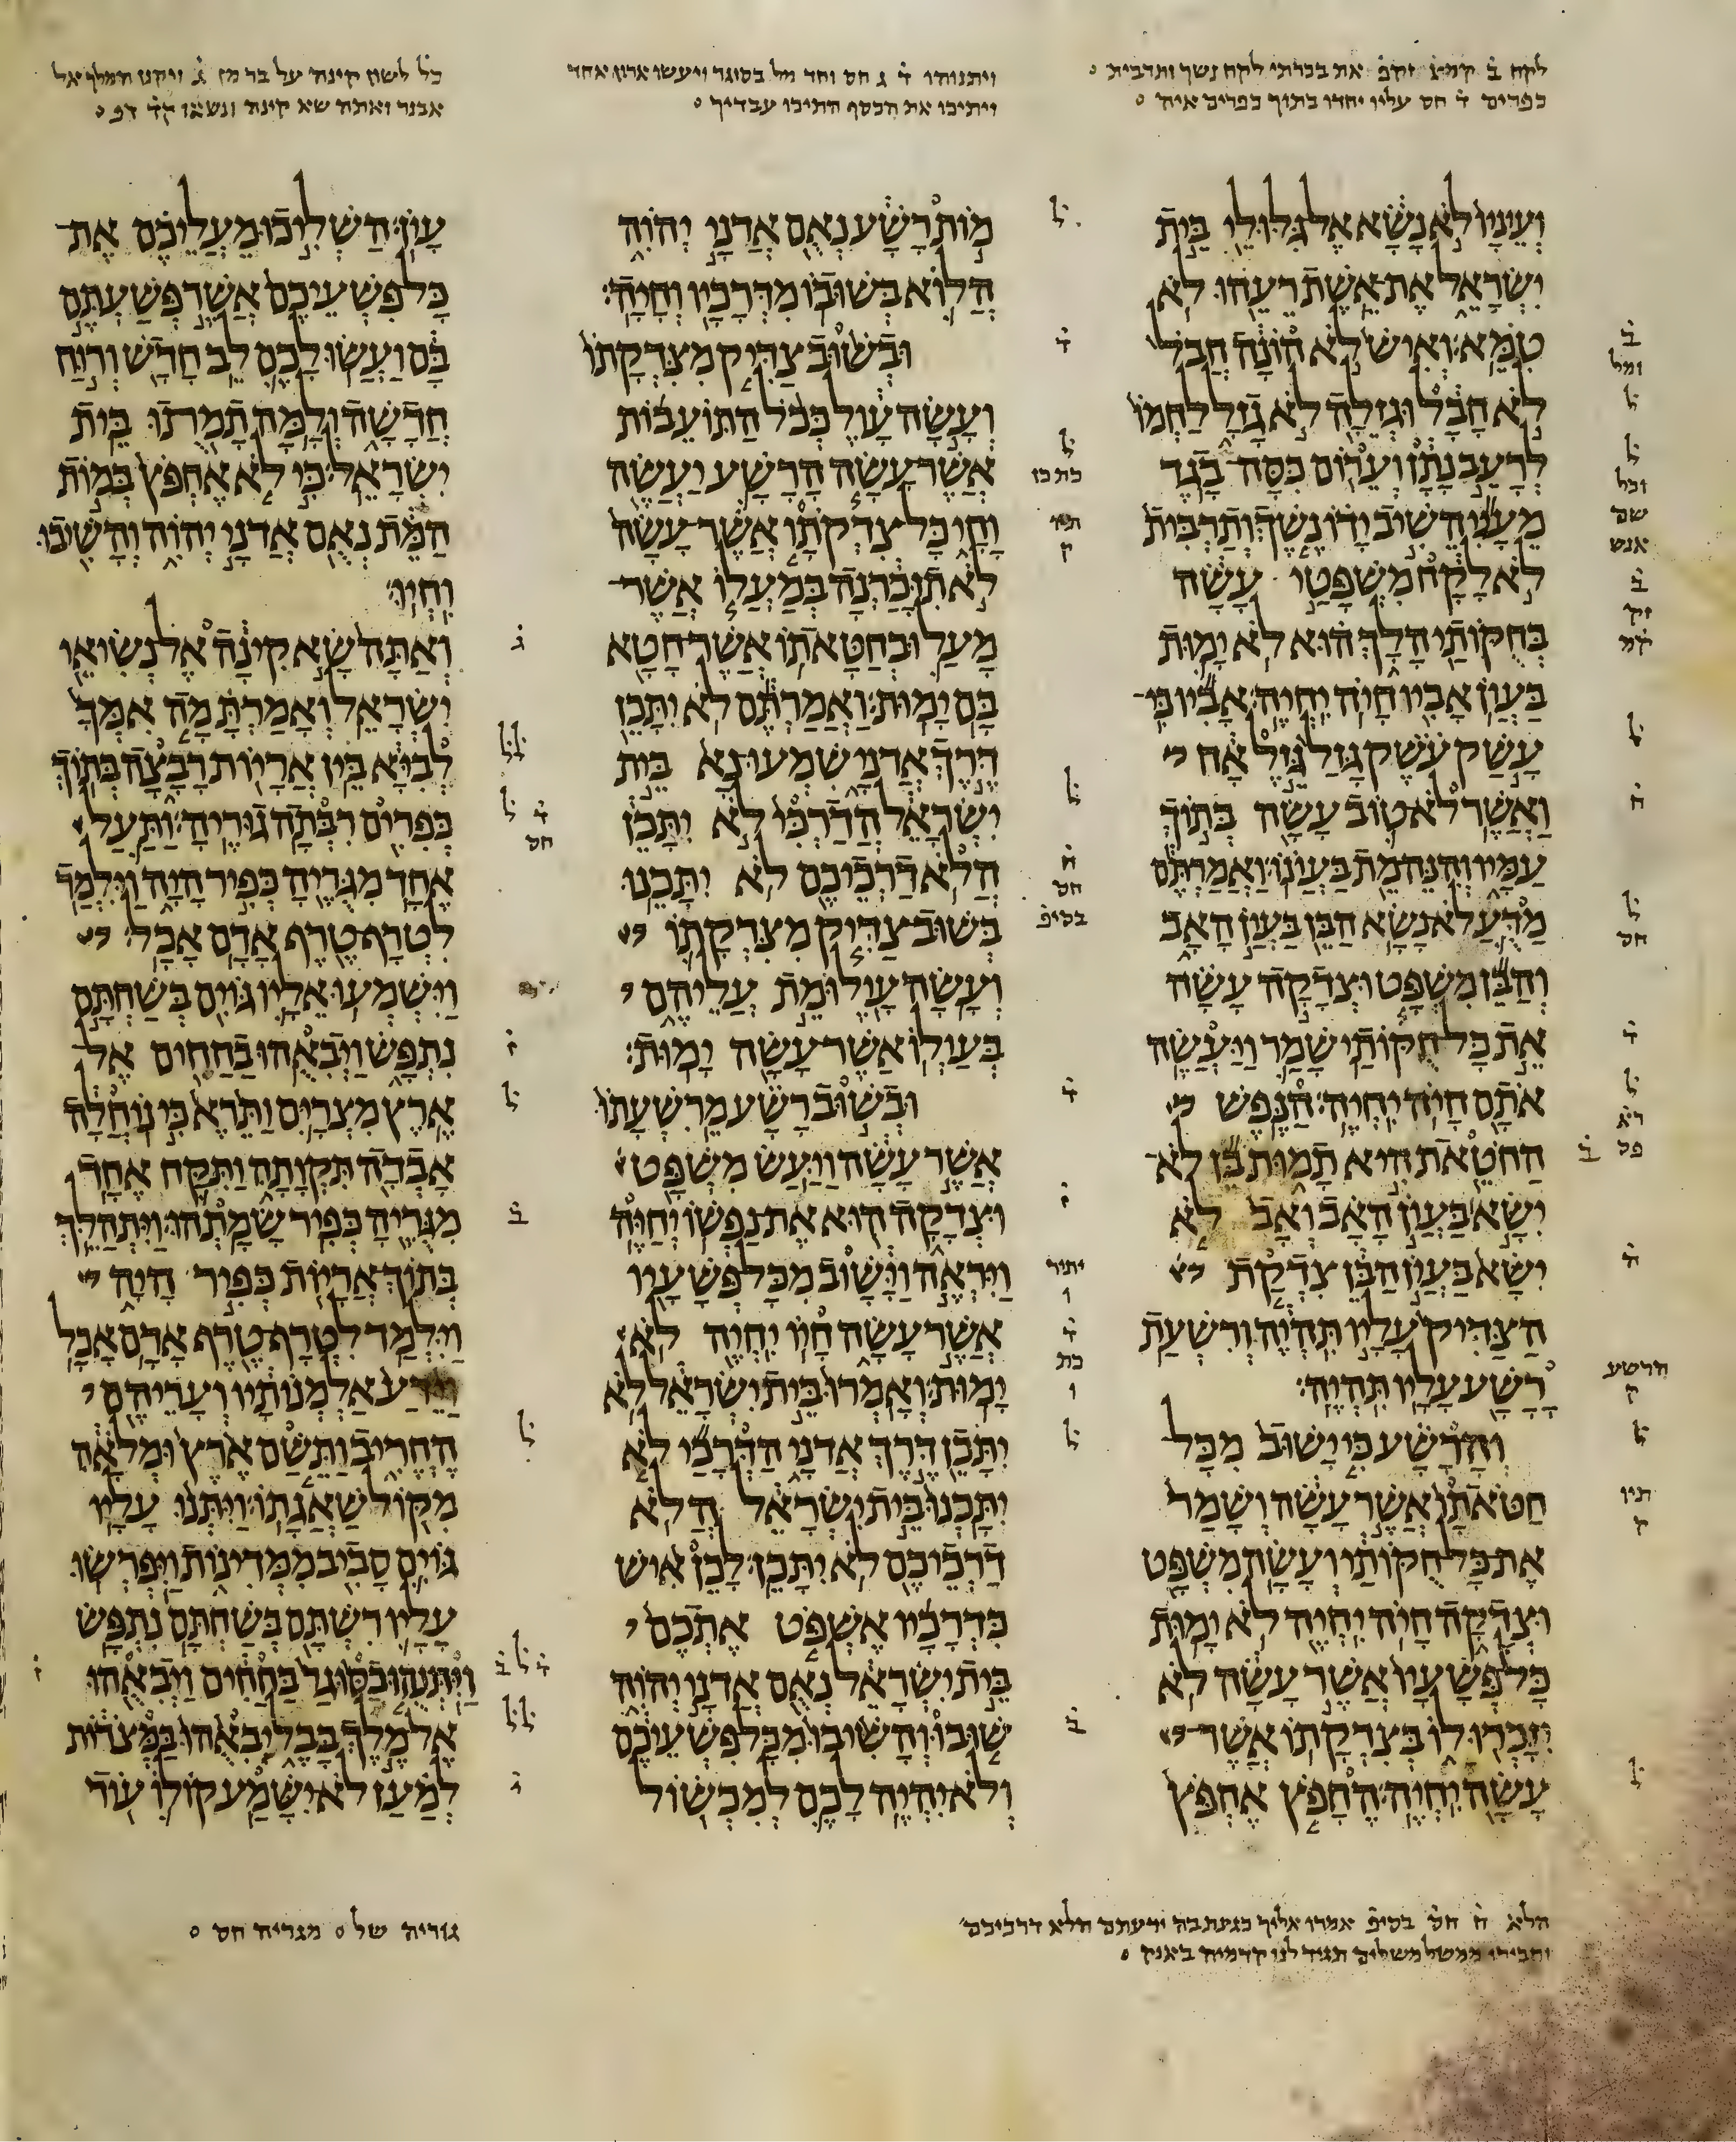 לקח ב קמצ וזקפ את בכרתי לקח נשך ותרבית
כפרים ד חס עליו יחדו בתוך כפרים איה
ויתנוהו ד ג חס וחד מל בסוגר ויעשו ארון אחד
ויתיכו את הכסף התיכו עבדיך
כל לשון קינה על בר מן ג ויקנן המלך אל
אבנר ואתה שא קינה ונשאו
ועיניו לא נשא אל גלולי בית
ישראל את אשת רעהו לא
טמא׃ ואיש לא הונה חבל
לא חבל וגזלה לא גזל לחמו
לרעב נתן וערום כסה בגד
מעני השיב ידו נשך ותרבית
לא לקח משפטי עשה
בחקותי הלך הוא לא ימות
בעון אביו חיה יחיה׃ אביו כי
עשק עשק גזל גזל אח
ואשר לא טוב עשה בתוך
עמיו והנה מת בעונו׃ ואמרתם
מדע לא נשא הבן בעון האב
והבן משפט וצדקה עשה
את כל חקותי שמר ויעשה
אתם חיה יחיה׃ הנפש
החטאת היא תמות בן לא
ישא בעון האב ואב לא
ישא בעון הבן צדקת
הצדיק עליו תהיה ורשעת
רשע עליו תהיה׃
והרשע כי ישוב מכל
חטאתו אשר עשה ושמר
את כל חקותי ועשה משפט
וצדקה חיה יחיה לא ימות
כל פשעיו אשר עשה לא
יזכרו לו בצדקתו אשר
עשה יחיה׃ החפץ אחפץ
מות רשע נאם אדני יהוה
הלוא בשובו מדרכיו וחיה׃
ובשוב צדיק מצדקתו
ועשה עול ככל התועבות
אשר עשה הרשע יעשה
וחי כל צדקתו אשר עשה
לא תזכרנה במעלו אשר
מעל ובחטאתו אשר חטא
בם ימות׃ ואמרתם לא יתכן
דרך אדני שמעו נא בית
ישראל הדרכי לא יתכן
הלא דרכיכם לא יתכנו
בשוב צדיק מצדקתו
ועשה עול ומת עליהם
בעולו אשר עשה ימות׃
ובשוב רשע מרשעתו
אשר עשה ויעש משפט
וצדקה הוא את נפשו יחיה
ויראה וישוב מכל פשעיו
אשר עשה חיו יחיה לא
ימות׃ ואמרו בית ישראל לא
יתכן דרך אדני הדרכי לא
יתכנו בית ישראל הלא
דרכיכם לא יתכן׃ לכן איש
כדרכיו אשפט אתכם
בית ישראל נאם אדני יהוה
שובו והשיבו מכל פשעיכם
ולא יהיה לכם למכשול
עון׃ השליכו מעליכם את
כל פשעיכם אשר פשעתם
בם ועשו לכם לב חדש ורוח
חדשה ולמה תמתו בית
ישראל׃ כי לא אחפץ במות
המת נאם אדני יהוה והשיבו
וחיו׃
ואתה שא קינה אל נשיאי
ישראל ואמרת מה אמך
לביא בין אריות רבצה בתוך
כפרים רבתה גוריה׃ ותעל
אחד מגריה כפיר היה וילמד
לטרף טרף אדם אכל׃
וישמעו אליו גוים בשחתם
נתפש ויבאהו בחחים אל
ארץ מצרים ותרא כי נוחלה
אבדה תקותה ותקח אחד
מגריה כפיר שמתהו׃ ויתהלך
בתוך אריות כפיר היה
וילמד לטרף טרף אדם אכל
וידע אלמנותיו ועריהם
החריב ותשם ארץ ומלאה
מקול שאגתו׃ ויתנו עליו
גוים סביב ממדינות ויפרשו
עליו רשתם בשחתם נתפש
ויתנהו בסוגר בחחים ויבאהו
אל מלך בבל יבאהו במצדות
למען לא ישמע קולו עוד
הלא ח חס בסיפ אמרו אליך כגעת בה ידעתם הלא דרכיכם
גוריה של מגריה חס